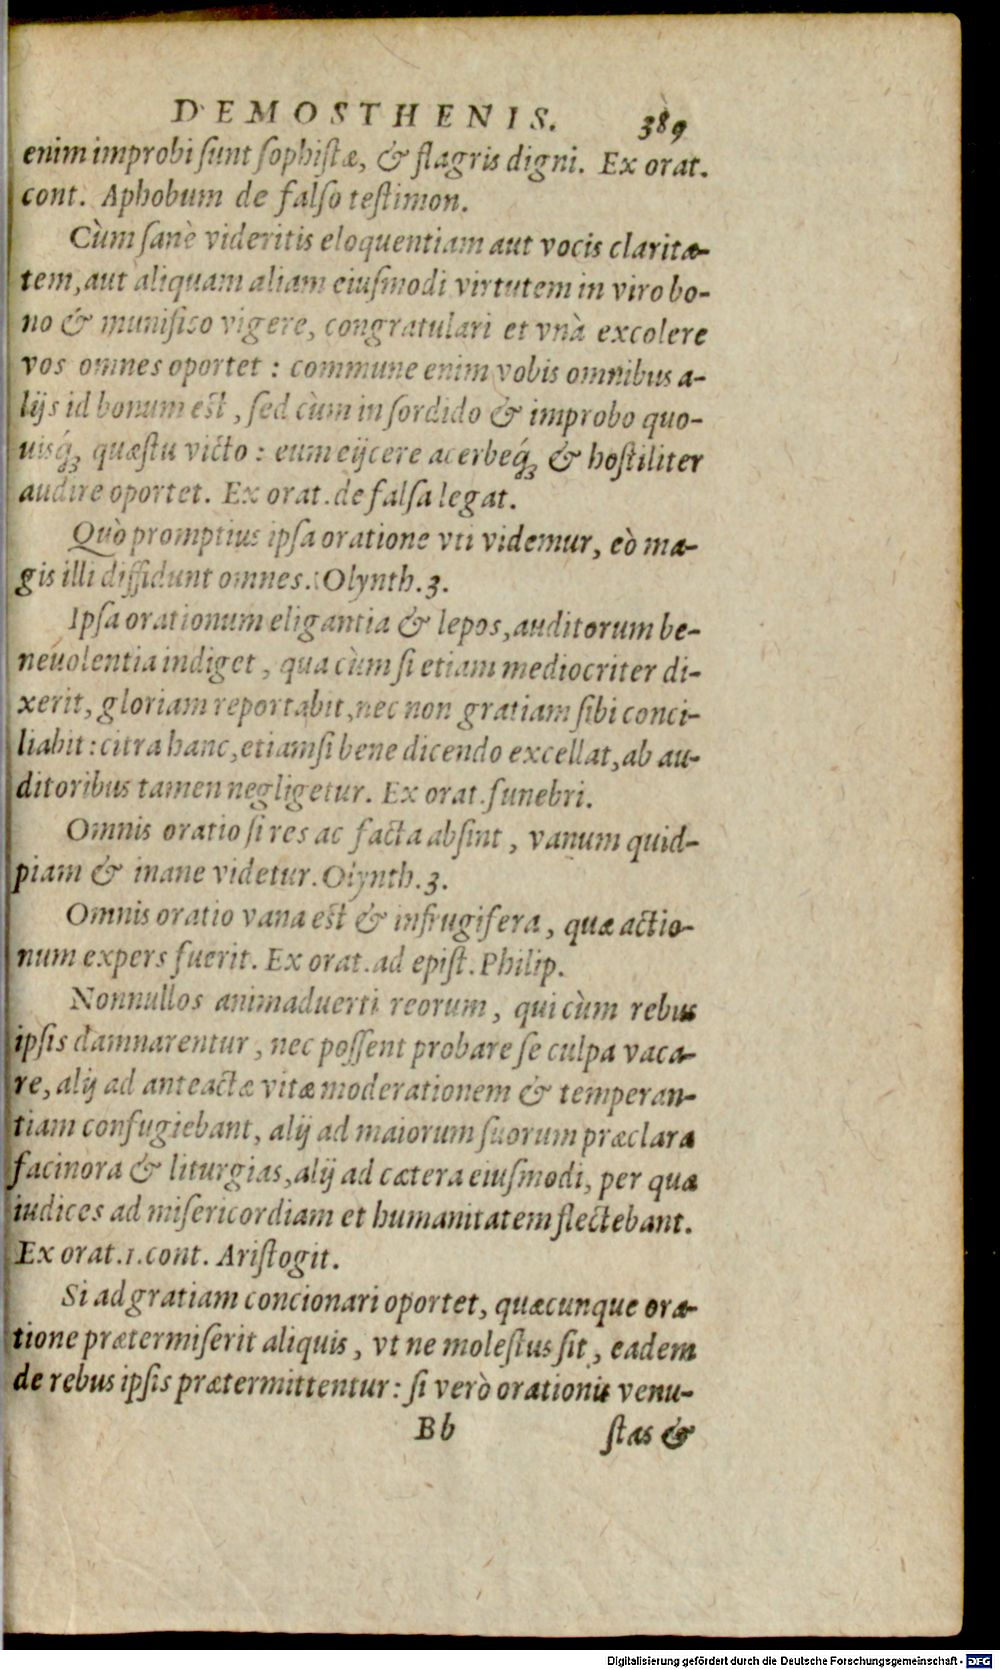 DEMOSTHENIS. 389
enim improbi sunt sophistæ, & flagris digni. Ex orat.
cont. Aphobum de falso testimon.
Cùm sanè videritis eloquentiam aut vocis clarita-
tem, aut aliquam aliam eiusmodi virtutem in viro bo-
no & munifico vigere, congratulari et vnà excolere
vos omnes oportet : commune enim vobis omnibus a-
lijs id bonum est, sed cùm in sordido & improbo quo-
uisq́ꝫ quæstu victo : eum eijcere acerbeq́ꝫ & hostiliter
audire oportet. Ex orat. de falsa legat.
Quò promptius ipsa oratione vti videmur, eò ma-
gis illi diffidunt omnes. Olynth. 3.
Ipsa orationum eligantia & lepos, auditorum be-
neuolentia indiget, qua cùm si etiam mediocriter di-
xerit, gloriam reportabit, nec non gratiam sibi conci-
liabit : citra hanc, etiamsi bene dicendo excellat, ab au-
ditoribus tamen negligetur. Ex orat. funebri.
Omnis oratio si res ac facta absint, vanum quid-
piam & inane videtur. Olynth. 3.
Omnis oratio vana est & infrugifera, quæ actio-
num expers fuerit. Ex orat. ad epist. Philip.
Nonnullos animaduerti reorum, qui cùm rebus
ipsis damnarentur, nec possent probare se culpa vaca-
re, alij ad anteactæ vitæ moderationem & temperan-
tiam confugiebant, alij ad maiorum suorum præclara
facinora & liturgias, alij ad cætera eiusmodi, per quæ
iudices ad misericordiam et humanitatem flectebant.
Ex orat. 1. cont. Aristogit.
Si ad gratiam concionari oportet, quæcunque ora-
tione prætermiserit aliquis, vt ne molestus sit, eadem
de rebus ipsis prætermittentur : si verò orationis venu-
Bb stas &
Digitalisierung gefördert durch die Deutsche Forschungsgemeinschaft - DFG